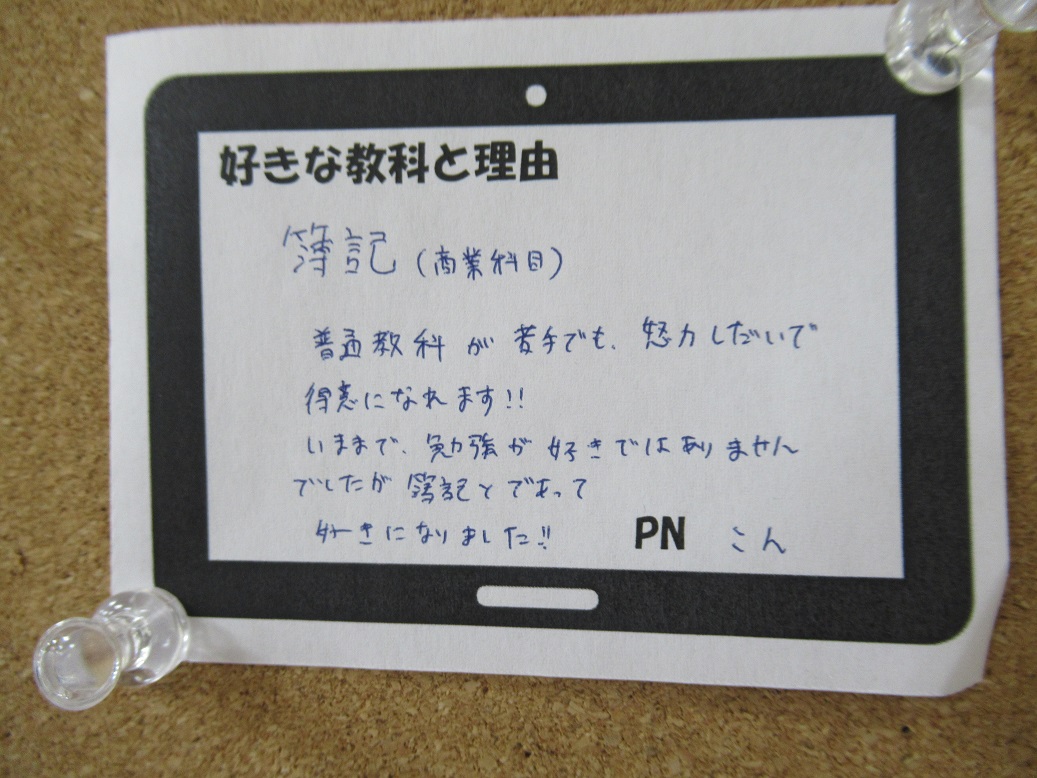 好きな教科と理由
簿記(商業科目)
普通教科が苦手でも、努力しだいで
得意になれます!!
いままで、勉強が好きではありません
でしたが簿記とであって
好きになりました!!
PN こん